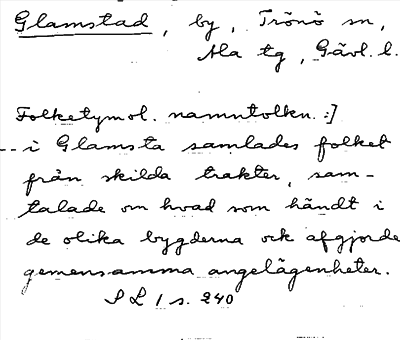 Glamstad, by, Trönö sn,
Ala tg, Gävl. l.
Folketymol. namntolkn. :]
-- i Glamsta samlades folket
från skilda trakter, sam-
talade om hvad som händt i
de olika bygderna och afgjorde
gemensamma angelägenheter.
S L 1 s. 240